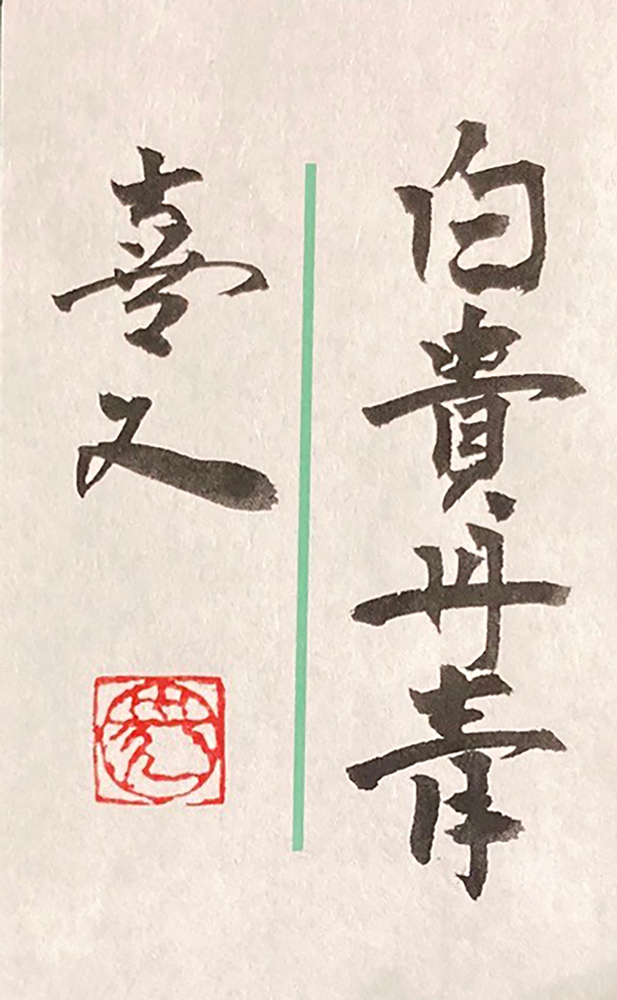 白貴丹青
喜又